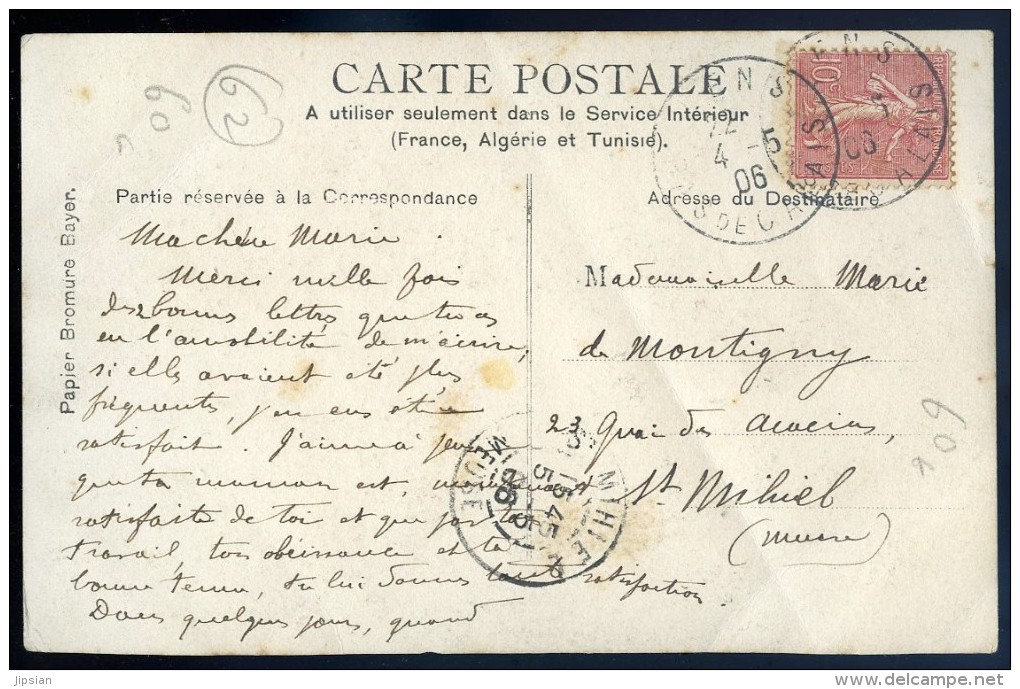 CARTE POSTALE
A utiliser seulement dans le Service Intérieur
(France, Algérie et Tunisie).
Partie réservée à la Correspondance
Adresse du Destinataire
Papier Bromure Bayer.
62
60
60
10c
4 - 5
06
PAS DE CALAIS
Ma chère Marie.
Merci mille fois
des bonnes lettres que tu as
eu l'amabilité de m'écrire,
si elles avaient été plus
fréquentes, j'en eus été
satisfait. J'aime à
que ta maman est,
satisfaite de toi et que par
travail, ton obéissance et ta
bonne tenue, tu lui donnes toute satisfaction.
Dans quelques jours, quand
Mademoiselle Marie
de Montigny
23 Quai des Acacias,
St Mihiel
(Meuse)
ST MIHIEL
MEUSE
Jipsian
delcampe.net